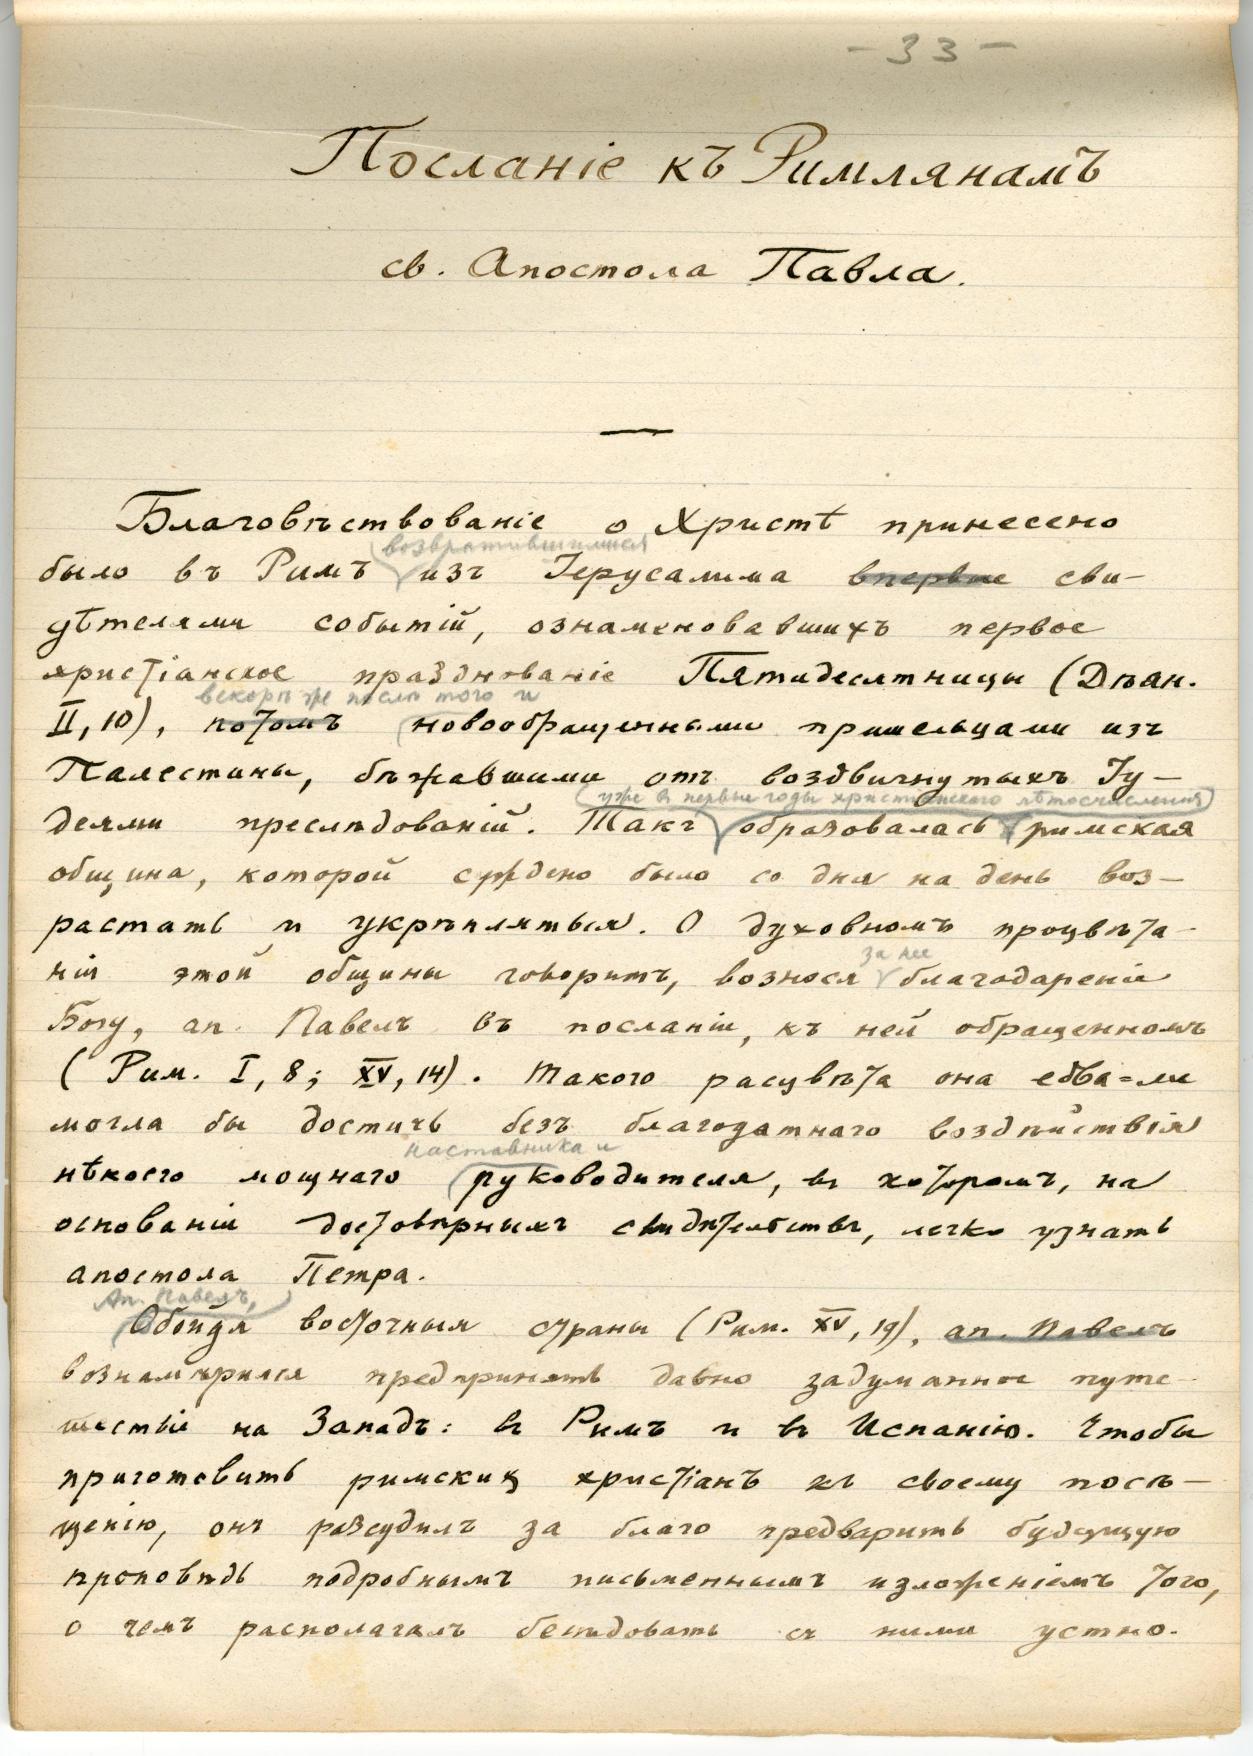 - 33 -
Посланіе къ Римлянамъ
св. Апостола Павла.
Благовѣствованіе о Христѣ принесено
возвратившимися
было въ Римъ изъ Іерусалима впервые сви-
дѣтелями событій, ознаменовавшихъ первое
христіанское празднованіе Пятидесятницы (Дѣян.
вскорѣ же послѣ того и
II, 10), потомъ новообращенными пришельцами изъ
Палестины, бѣжавшими отъ воздвигнутыхъ Іу-
уже въ первые годы христіанскаго лѣтосчисленія
деями преслѣдованій. Такъ образовалась римская
община, которой суждено было со дня на день воз-
растать и укрѣпляться. О духовномъ процвѣта-
за нее
ніи этой общины говоритъ, вознося благодареніе
Богу, ап. Павелъ въ посланіи, къ ней обращенномъ
(Рим. I, 8; XV, 14). Такого расцвѣта она едва-ли
могла бы достичь безъ благодатнаго воздѣйствія
наставника и
нѣкоего мощнаго руководителя, въ которомъ, на
основаніи достовѣрныхъ свидѣтельствъ, легко узнать
апостола Петра.
Ап. Павелъ,
Обойдя восточныя страны (Рим. XV, 19), ап. Павелъ
вознамѣрился предпринять давно задуманное путе-
шествіе на Западъ: въ Римъ и въ Испанію. Чтобы
приготовить римскихъ христіанъ къ своему посѣ-
щенію, онъ разсудилъ за благо предварить будущую
проповѣдь подробнымъ письменнымъ изложеніемъ того,
о чемъ располагалъ бесѣдовать съ ними устно.